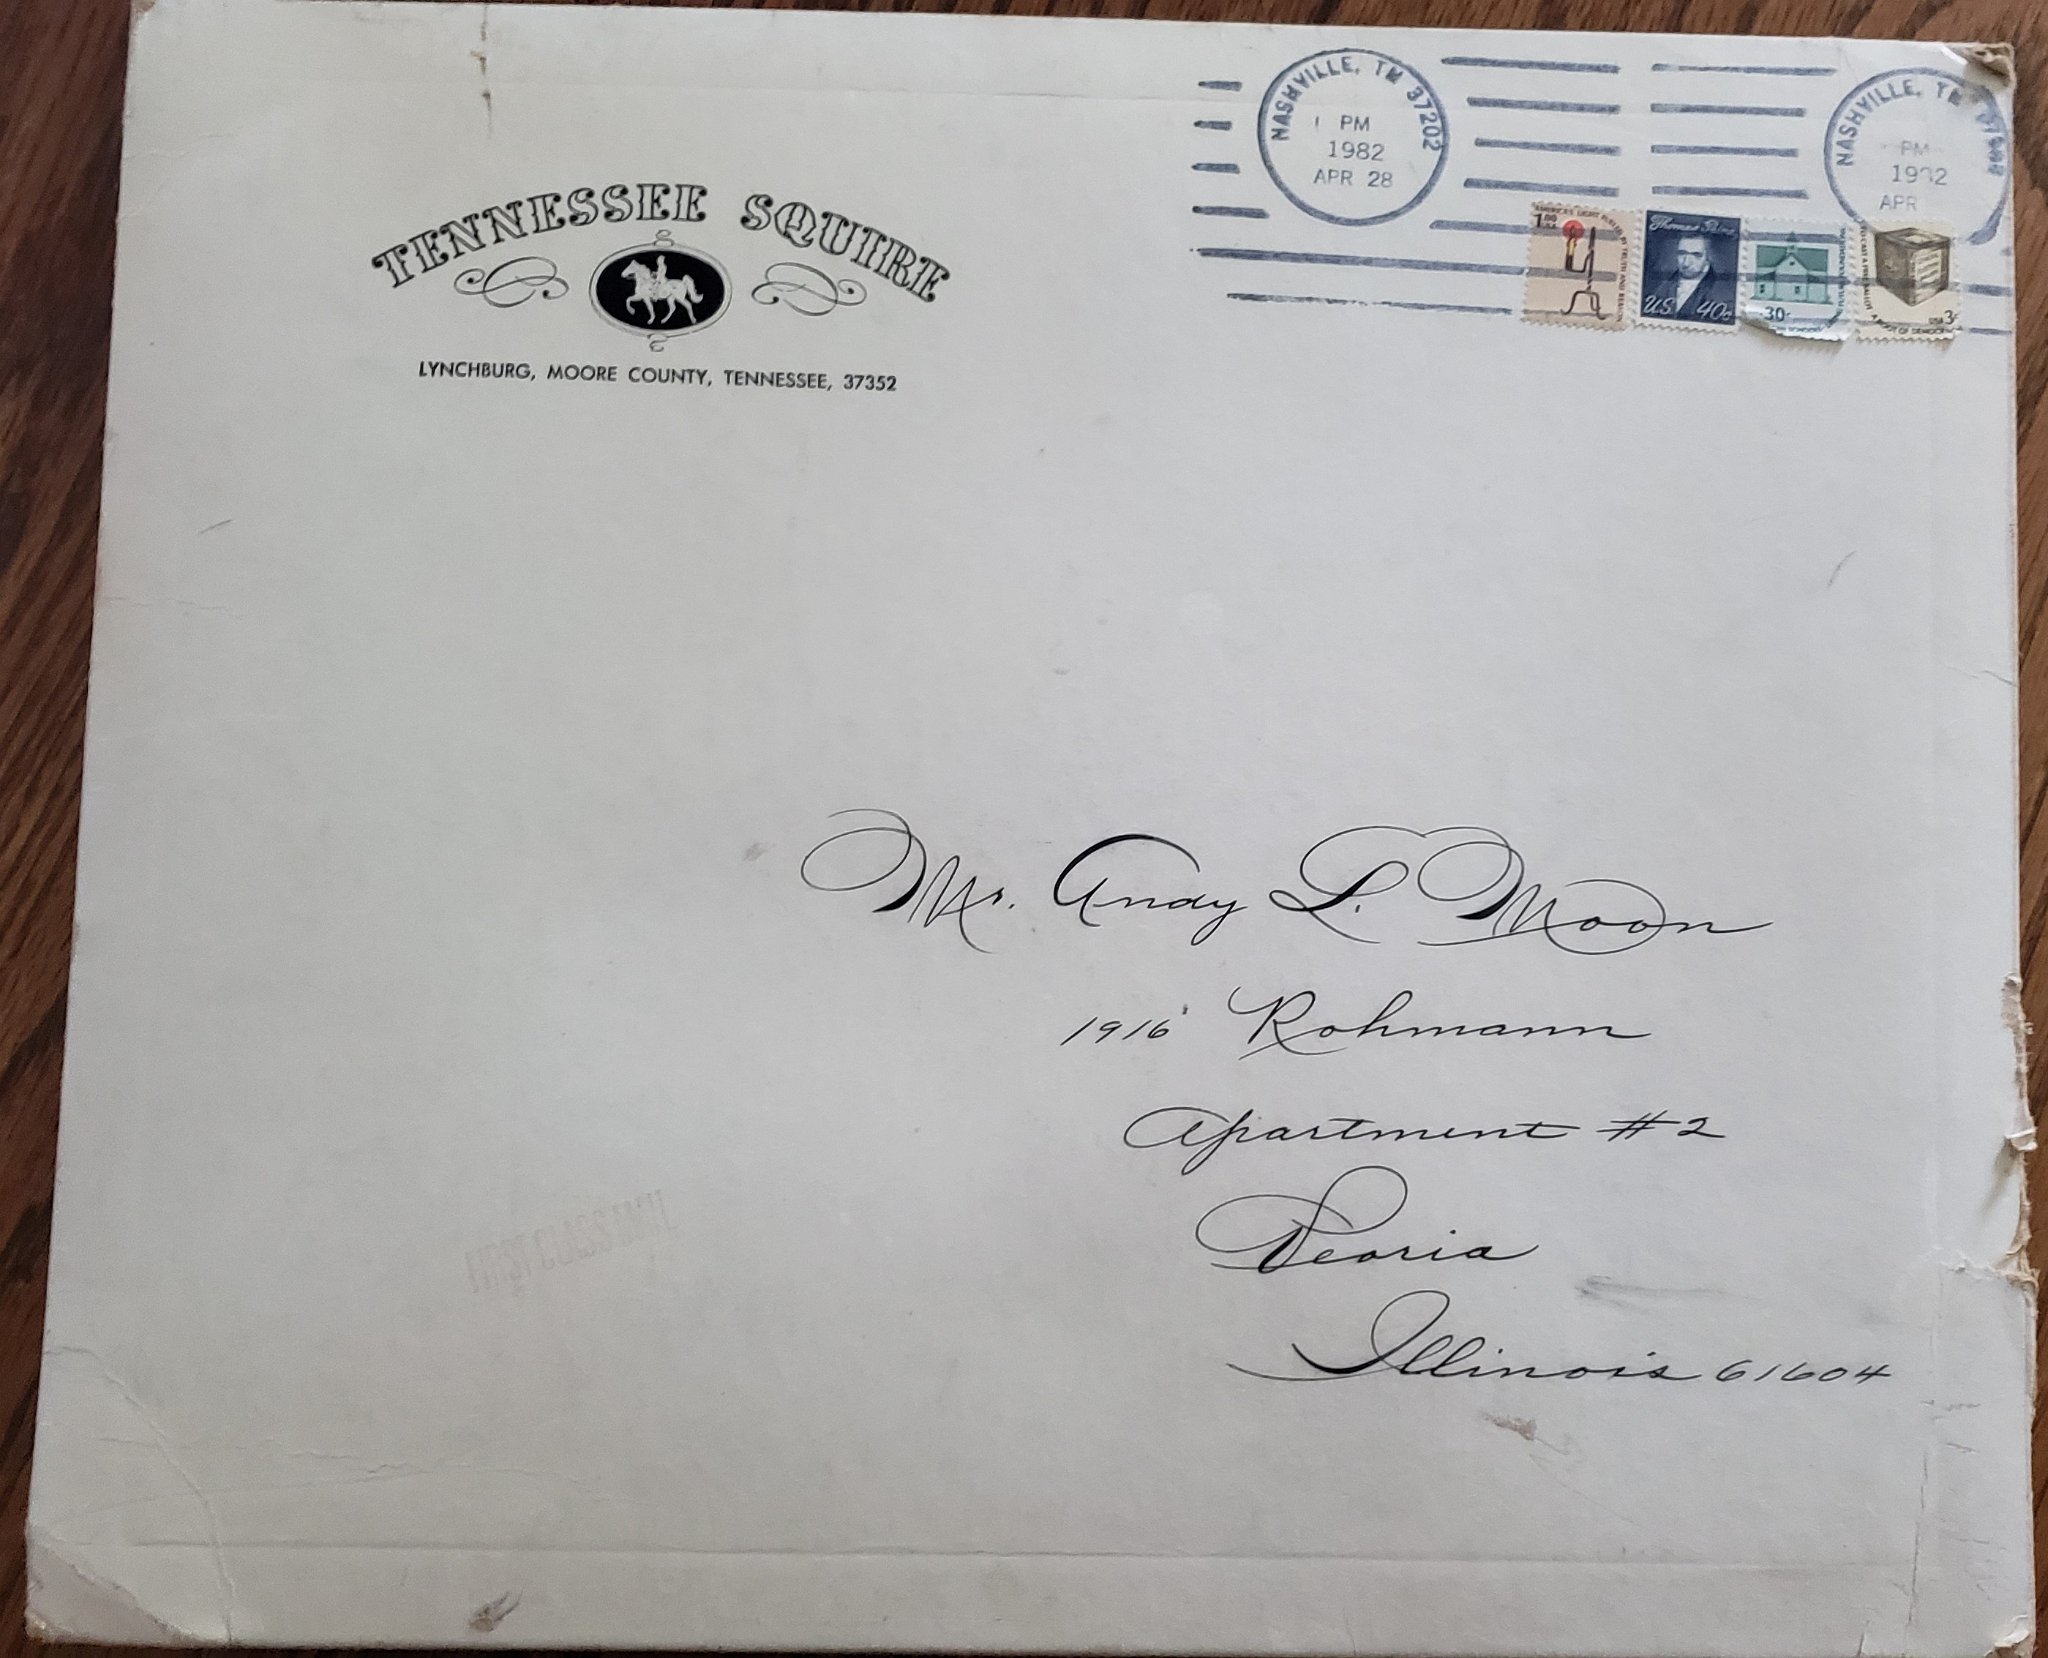 TENNESSEE SQUIRE
LYNCHBURG, MOORE COUNTY, TENNESSEE, 37352
NASHVILLE, TN 37202
PM
1982
APR 28
NASHVILLE, TN
PM
1982
APR
AMERICA'S LIGHT
1.00
Thomas Paine
U.S. 40c
30c
A ROOT OF DEMOCRACY
USA 3c
Mr. Andy L. Moon
1916 Rohmann
Apartment #2
Peoria
Illinois 61604